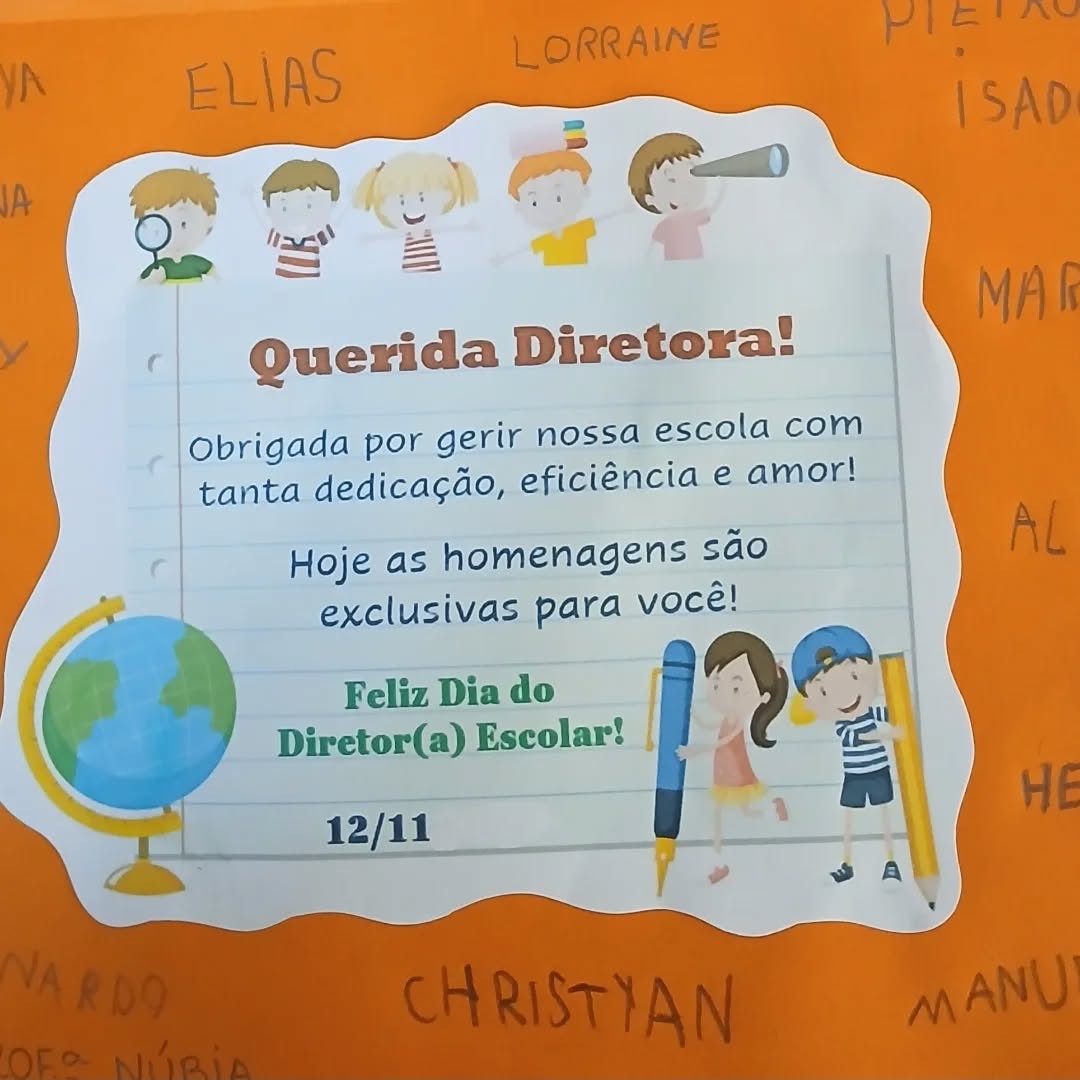 ELIAS
LORRAINE
Querida Diretora!
Obrigada por gerir nossa escola com
tanta dedicação, eficiência e amor!
Hoje as homenagens são
exclusivas para você!
Feliz Dia do
Diretor(a) Escolar!
12/11
CHRISTYAN
NÚBIA